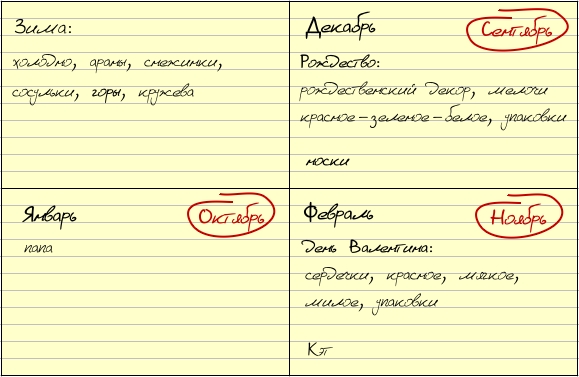 Зима:
холодно, араны, снежинки,
сосульки, горы, кружева
Декабрь Сентябрь
Рождество:
рождественский декор, мелочи
красное-зеленое-белое, упаковки
носки
Январь Октябрь
папа
Февраль Ноябрь
День Валентина:
сердечки, красное, мягкое,
милое, упаковки
Кэп